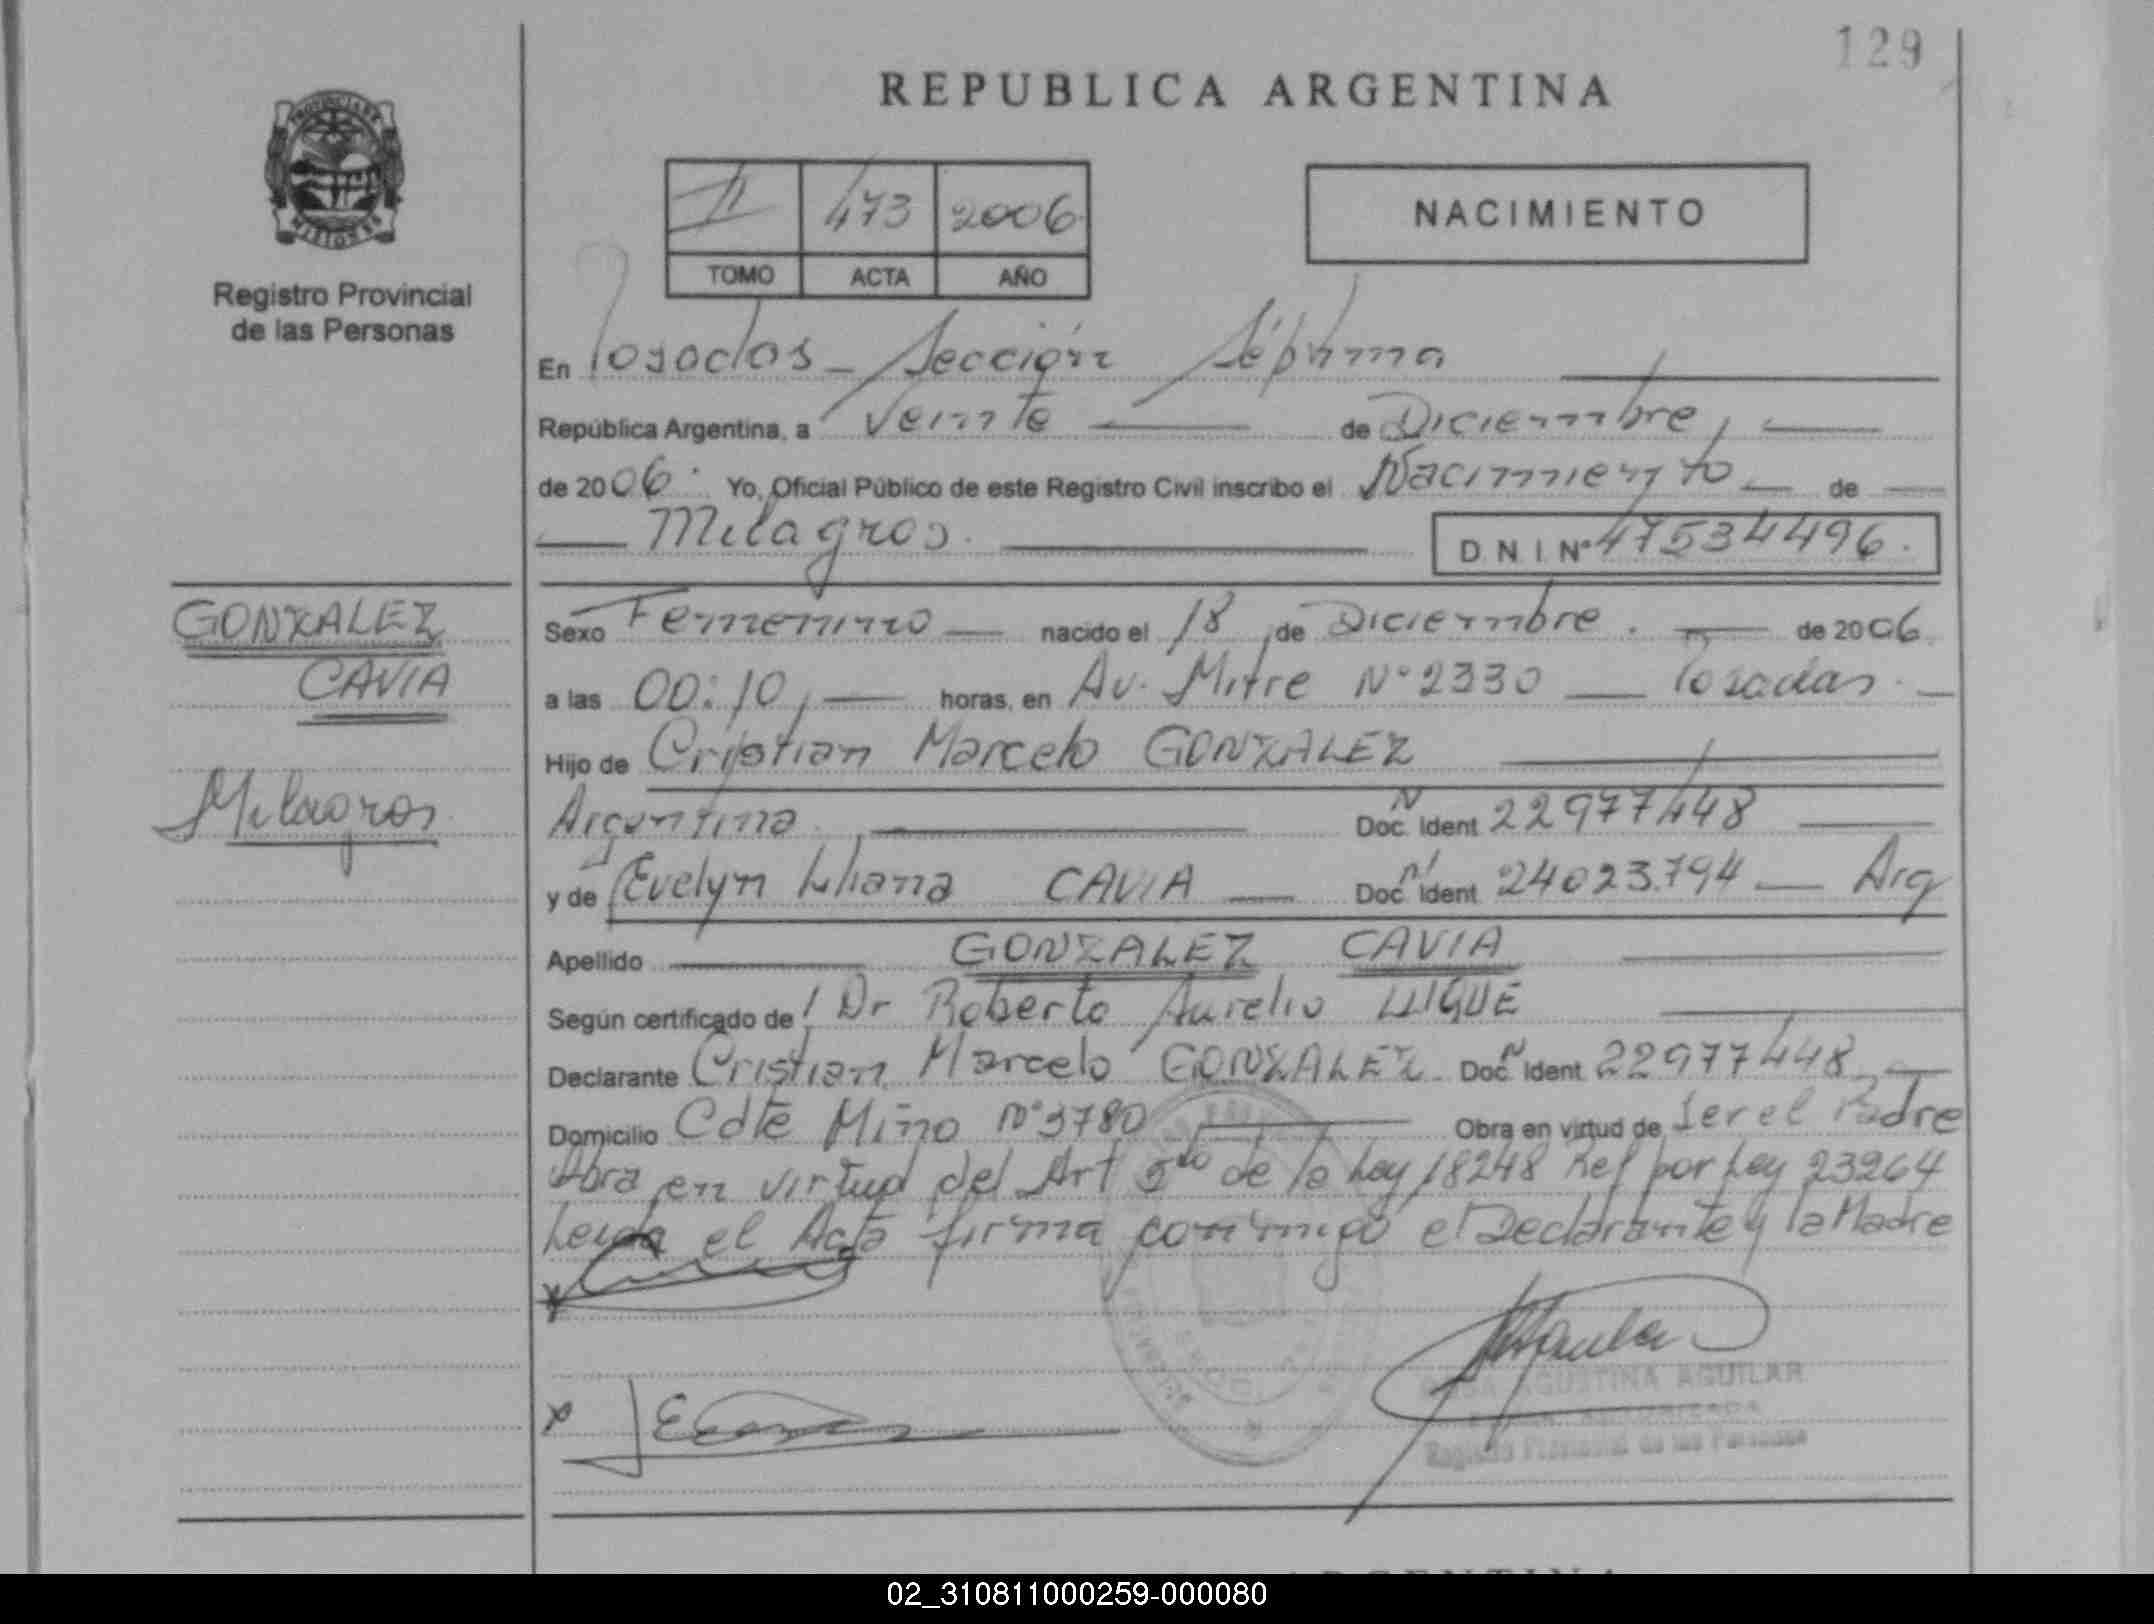 129
REPUBLICA ARGENTINA
PROVINCIA DE
MISIONES
Registro Provincial
de las Personas
II 473 2006
TOMO ACTA AÑO
NACIMIENTO
En Posadas - Sección Séptima
República Argentina, a Veinte de Diciembre,
de 2006. Yo, Oficial Público de este Registro Civil inscribo el Nacimiento de
Milagros. D N I Nº 47534496.
GONZALEZ
CAVIA
Milagros
Sexo Femenino nacido el 18 de Diciembre. de 2006.
a las 00:10, horas, en Av. Mitre Nº 2330 Posadas.
Hijo de Cristian Marcelo GONZALEZ
Argentina Doc. Ident N 22977448
y de Evelyn Liliana CAVIA Doc. Ident n 24023.794 Arg
Apellido GONZALEZ CAVIA
Según certificado de Dr Roberto Aurelio
Declarante Cristian Marcelo GONZALEZ Doc. Ident N 22977448
Domicilio Cdte Miño Nº 3780 Obra en virtud de Ser el Padre
Obra en virtud del Art de la Ley 18248 Ref por Ley 23264
Leida el Acta firma conmigo el Declarante y la Madre
x
x
ROSA AGUSTINA AGUILAR
Registro Provincial de las Personas
ARGENTINA
02_310811000259-000080